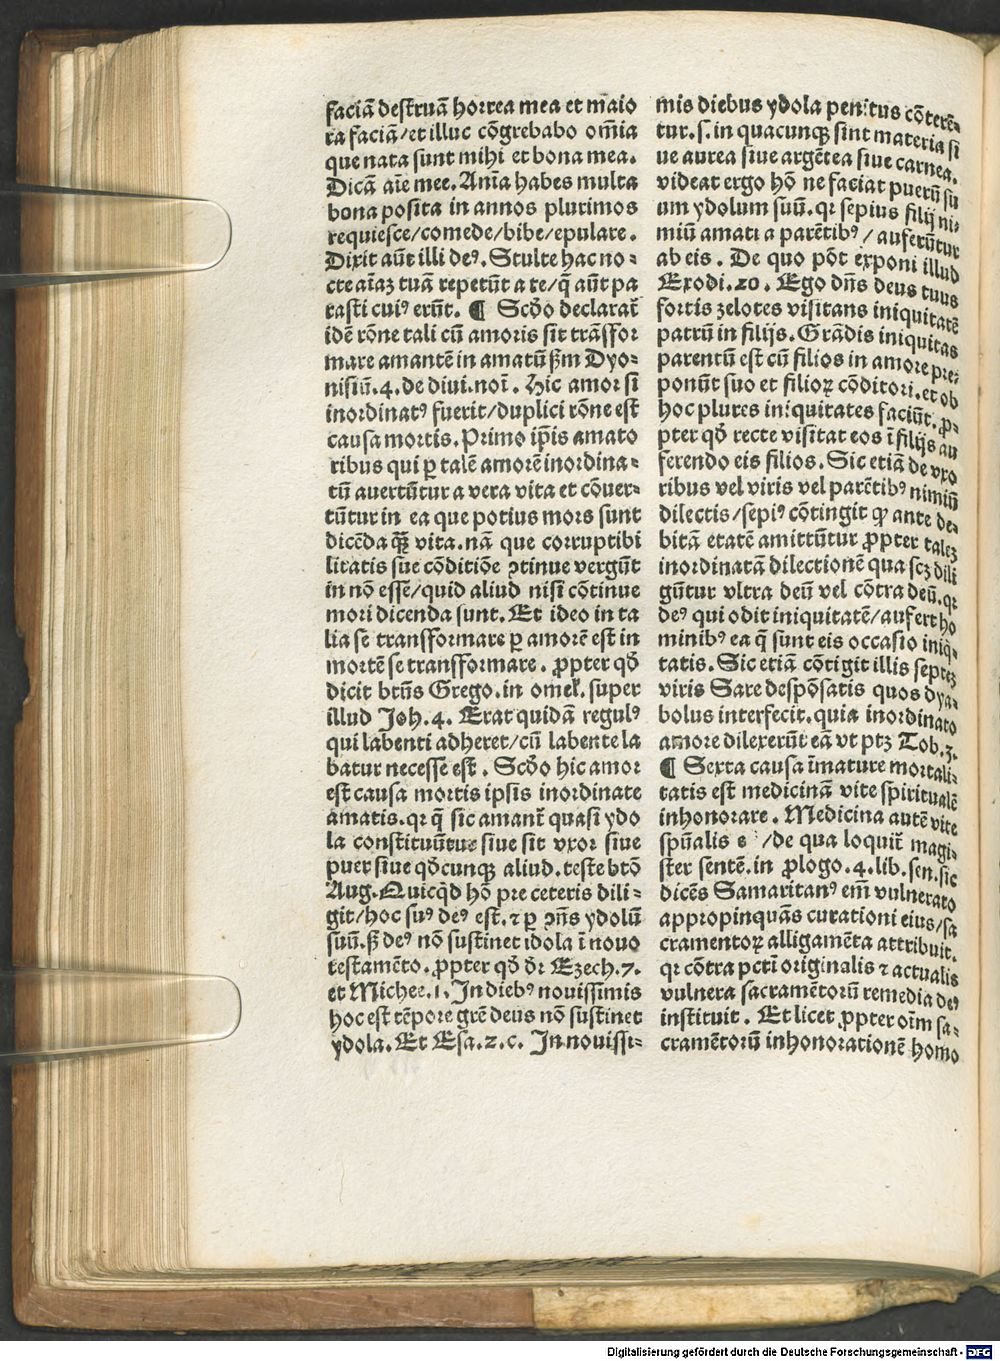 faciā destruā horrea mea et maio
ra faciā/et illuc cōgregabo om̄ia
que nata sunt mihi et bona mea.
Dicā aīe mee. Anīa habes multa
bona posita in annos plurimos
requiesce/comede/bibe/epulare.
Dixit aūt illi deꝰ. Stulte hac no-
cte aīaz tuā repetūt a te/q̄ aūt pa
rasti cuiꝰ erūt. ¶ Scd̄o declarat̄
idē rōne tali cū amoris sit trāsfor
mare amantē in amatū ẜm Dyo-
nisiū.4. de diui.noī. Hic amor si
inordinatꝰ fuerit/duplici rōne est
causa mortis. Primo ip̄is amato
ribus qui ꝑ talē amorē inordina-
tū auertūtur a vera vita et cōuer-
tūtur in ea que potius mors sunt
dicēda ꝙ̄ vita.nā que corruptibi
litatis sue cōditiōe ↄtinue vergūt
in nō esse/quid aliud nisi cōtinue
mori dicenda sunt. Et ideo in ta
lia se transformare ꝑ amorē est in
mortē se transformare. ꝓpter qd̄
dicit btūs Grego.in omeł. super
illud Joh.4. Erat quidā regulꝰ
qui labenti adheret/cū labente la
batur necesse est. Scd̄o hic amor
est causa mortis ipsis inordinate
amatis.qꝛ q̄ sic amant̄ quasi ydo
la constituūtur siue sit vxor siue
puer siue qd̄cunqꝫ aliud.teste btō
Aug. Quicqd̄ hō pre ceteris dili-
git/hoc suꝰ deꝰ est.⁊ ꝑ ↄn̄s ydolū
suū.ẜ deꝰ nō sustinet idola ī nouo
testamēto. ꝓpter qd̄ dr̄ Ezech.7.
et Michee.1. In diebꝰ nouissimis
hoc est tēpore grē deus nō sustinet
ydola. Et Esa.2.c. In nouissi-
mis diebus ydola penitus cōterē-
tur.s. in quacunqꝫ sint materia si
ue aurea siue argētea siue carnea.
videat ergo hō ne faciat puerū su
um ydolum suū. qꝛ sepius filij ni-
miū amati a parētibꝰ/auferūtur
ab eis. De quo pōt exponi illud
Exodi.20. Ego dn̄s deus tuus
fortis zelotes visitans iniquitatē
patrū in filijs. Grādis iniquitas
parentū est cū filios in amore pre-
ponūt suo et filioꝝ cōditori.et ob
hoc plures iniquitates faciūt. ꝓ-
pter qd̄ recte visitat eos ī filijs au
ferendo eis filios. Sic etiā de vxo
ribus vel viris vel parētibꝰ nimiū
dilectis/sepiꝰ cōtingit ꝙ ante de-
bitā etatē amittūtur ꝓpter talez
inordinatā dilectionē qua scz dili
gūtur vltra deū vel cōtra deū.qꝛ
deꝰ qui odit iniquitatē/aufert ho
minibꝰ ea q̄ sunt eis occasio iniq-
tatis. Sic etiā cōtigit illis septez
viris Sare despōsatis quos dya-
bolus interfecit.quia inordinato
amore dilexerūt eā vt ptz Tob.3.
¶ Sexta causa īmature mortali-
tatis est medicinā vite spiritualē
inhonorare. Medicina autē vite
spūalis e /de qua loquit̄ magi-
ster sentē.in ꝓlogo.4.lib.sen.sic
dicēs Samaritanꝰ em̄ vulnerato
appropinquās curationi eius/sa
cramentoꝝ alligamēta attribuit.
qꝛ cōtra pctī originalis ⁊ actualis
vulnera sacramētorū remedia deꝰ
instituit. Et licet ꝓpter oīm sa-
cramētorū inhonorationē homo
Digitalisierung gefördert durch die Deutsche Forschungsgemeinschaft - DFG